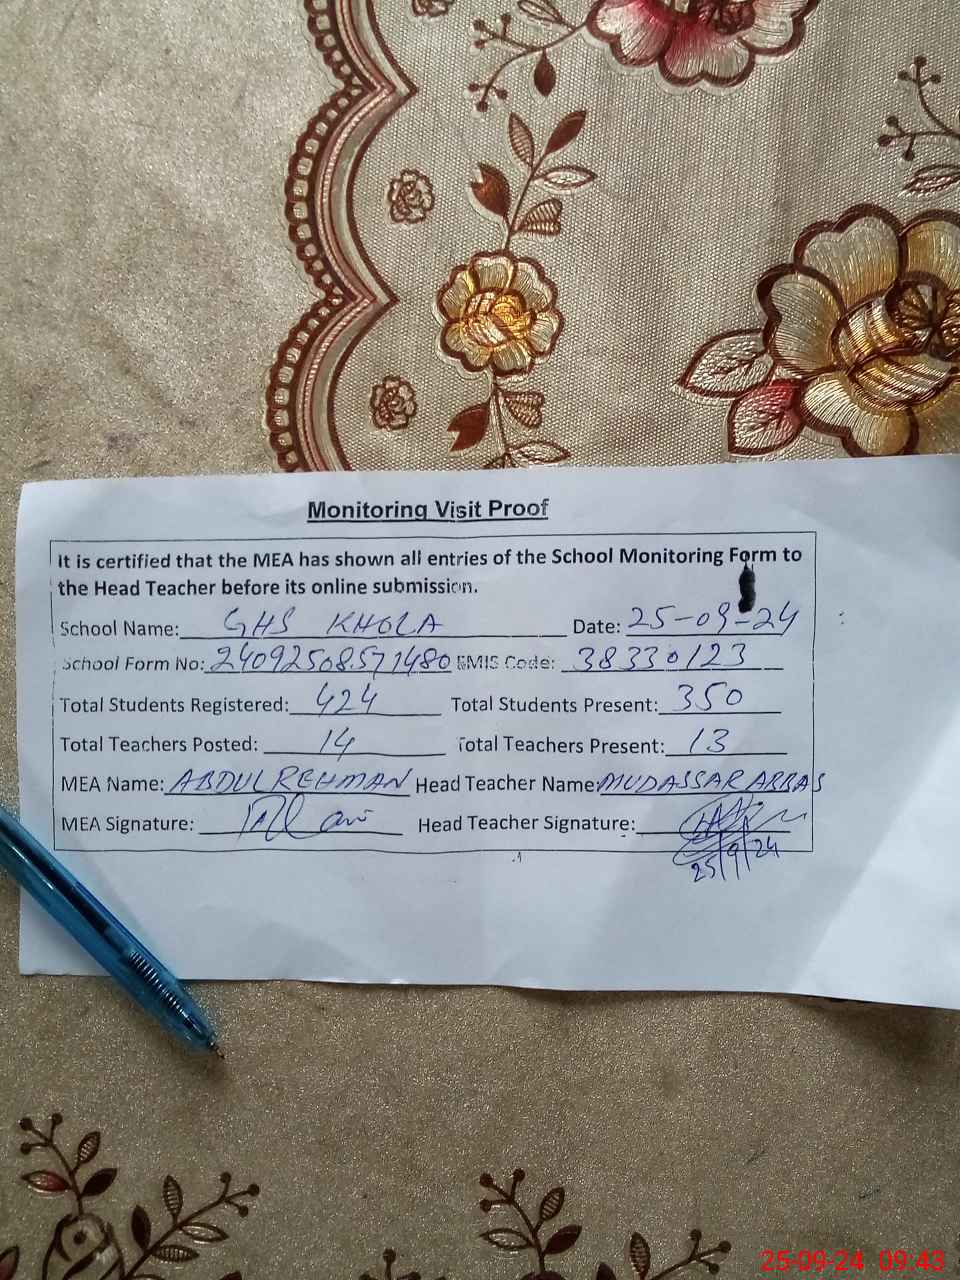 Monitoring Visit Proof
It is certified that the MEA has shown all entries of the School Monitoring Form to
the Head Teacher before its online submission.
School Name: GHS KHOLA Date: 25-09-24
School Form No: 24092508571480 EMIS Code: 38330123
Total Students Registered: 424 Total Students Present: 350
Total Teachers Posted: 14 Total Teachers Present: 13
MEA Name: ABDUL REHMAN Head Teacher Name: MUDASSAR ABBAS
MEA Signature: Head Teacher Signature:
25/9/24
25-09-24 09:43